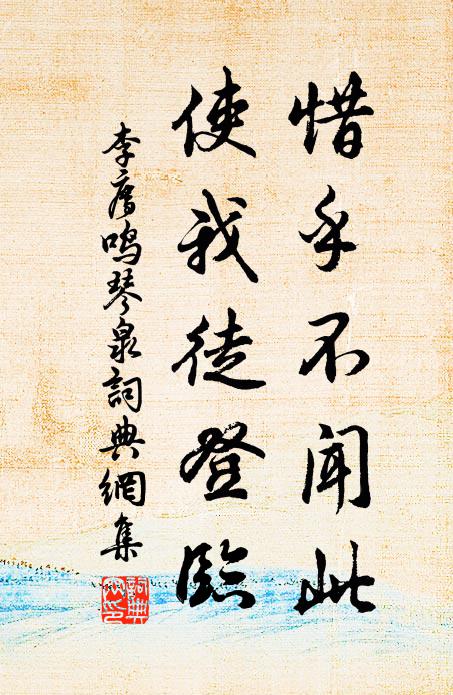 惜乎不闻此
使我徒登临
李廌鸣琴泉詞典網集
詞典